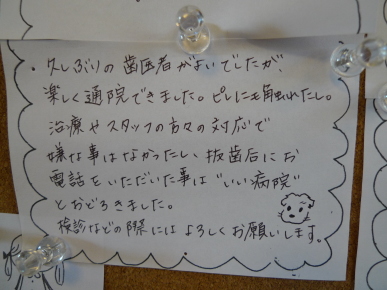 久しぶりの歯医者がよいでしたが、
楽しく通院できました。ピレにも触れたし。
治療やスタッフの方々の対応で
嫌な事はなかったし、抜歯后にお
電話をいただいた事は"いい病院"
とおどろきました。
検診などの際にはよろしくお願いします。